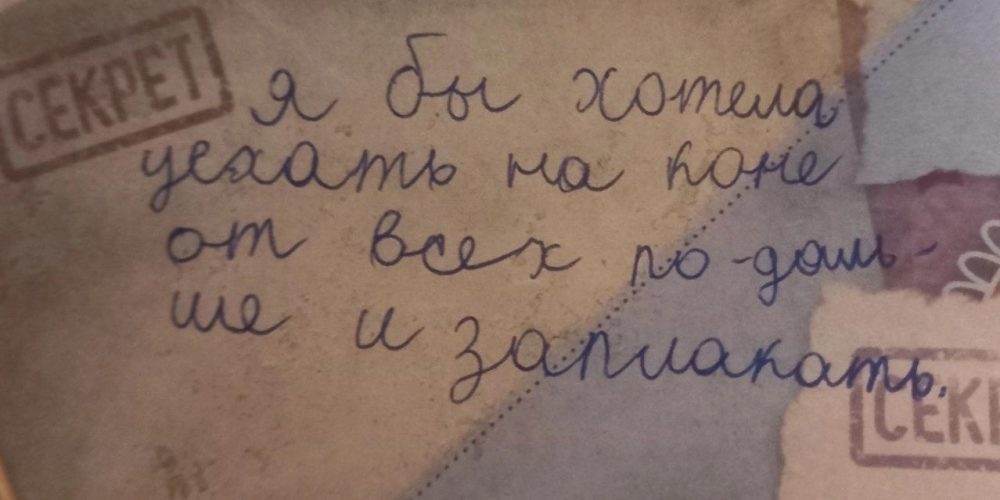 СЕКРЕТ
я бы хотела
уехать на коне
от всех по-даль-
ше и заплакать.
СЕК